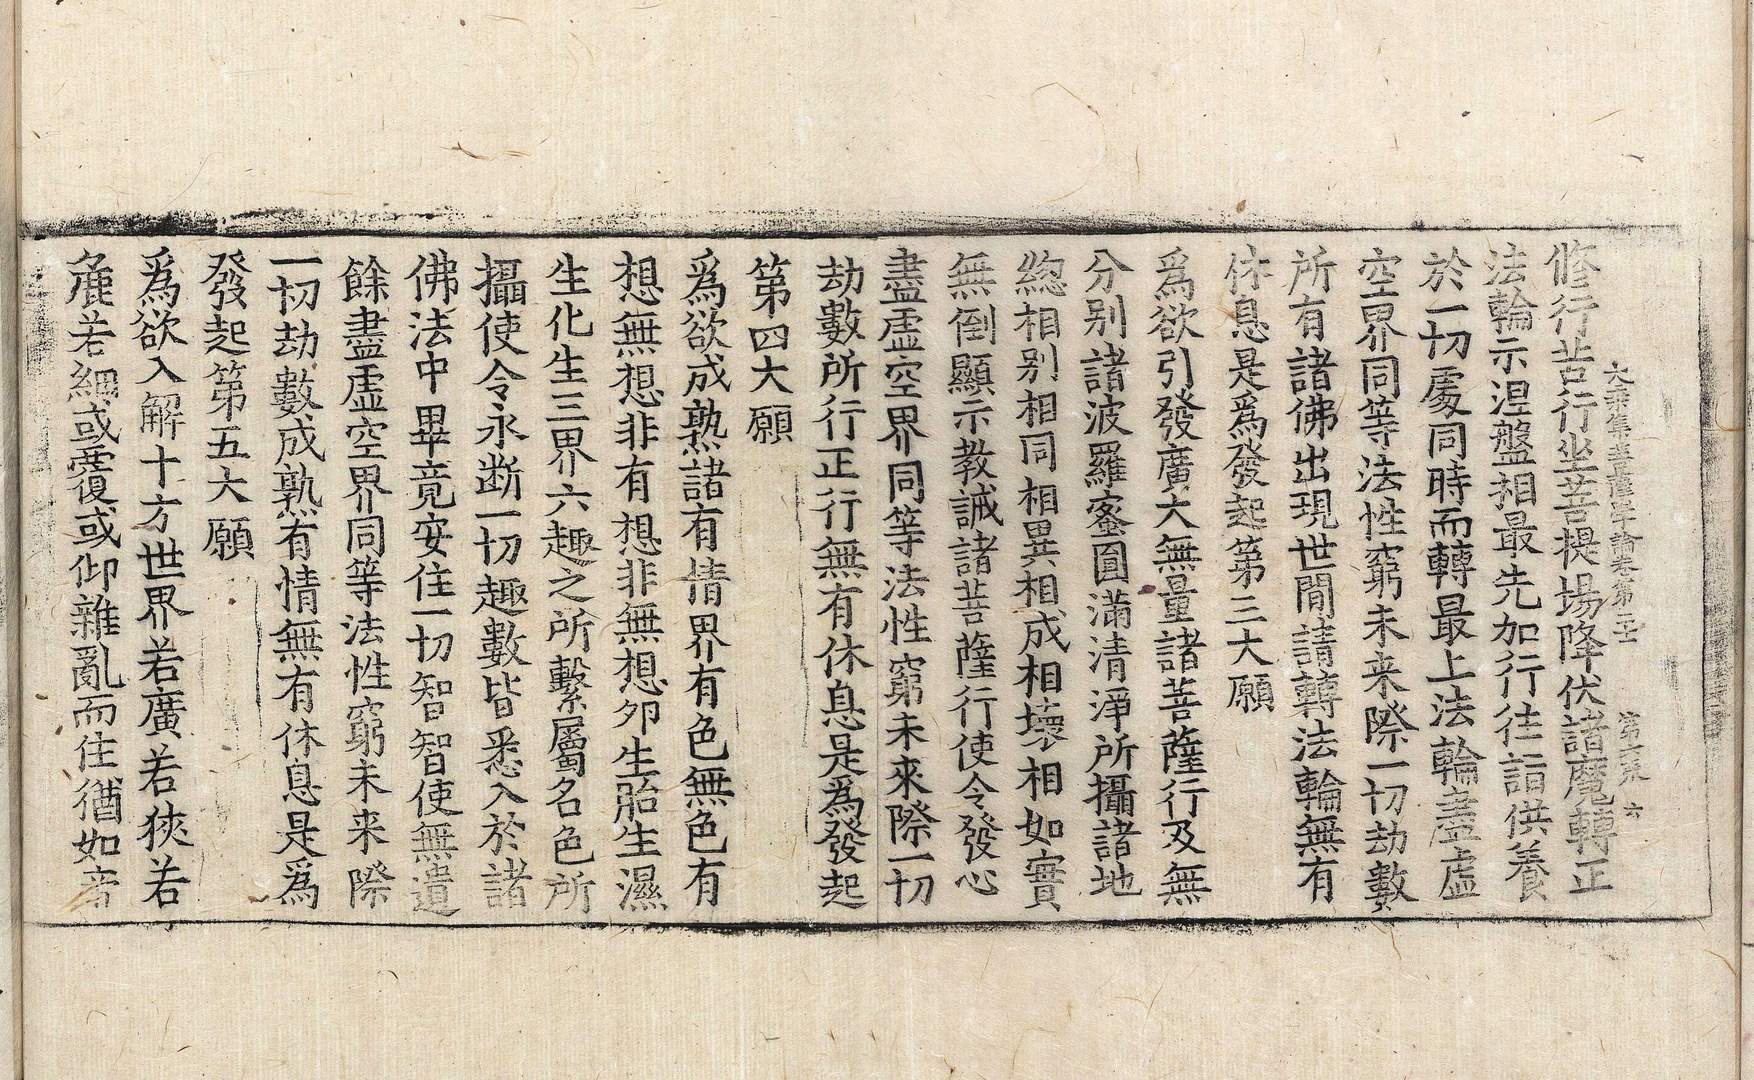 大乘集菩薩學論卷第二十 第六張 六
修行苦行坐菩提場降伏諸魔轉正
法輪示涅盤相最先加行往詣供養
於一切處同時而轉最上法輪盡虛
空界同等法性窮未来際一切劫數
所有諸佛出現世間請轉法輪無有
休息是爲發起第三大願
爲欲引發廣大無量諸菩薩行及無
分别諸波羅蜜圓滿清淨所攝諸地
緫相别相同相異相成相壞相如實
無倒顯示教誡諸菩薩行使令發心
盡虛空界同等法性窮未來際一切
劫數所行正行無有休息是爲發起
第四大願
爲欲成熟諸有情界有色無色有
想無想非有想非無想卵生胎生濕
生化生三界六趣之所繫屬名色所
攝使令永断一切趣數皆悉入於諸
佛法中畢竟安住一切智智使無遺
餘盡虛空界同等法性窮未来際
一切劫數成熟有情無有休息是爲
發起第五大願
爲欲入解十方世界若廣若狹若
麁若細或覆或仰雜亂而住猶如帝